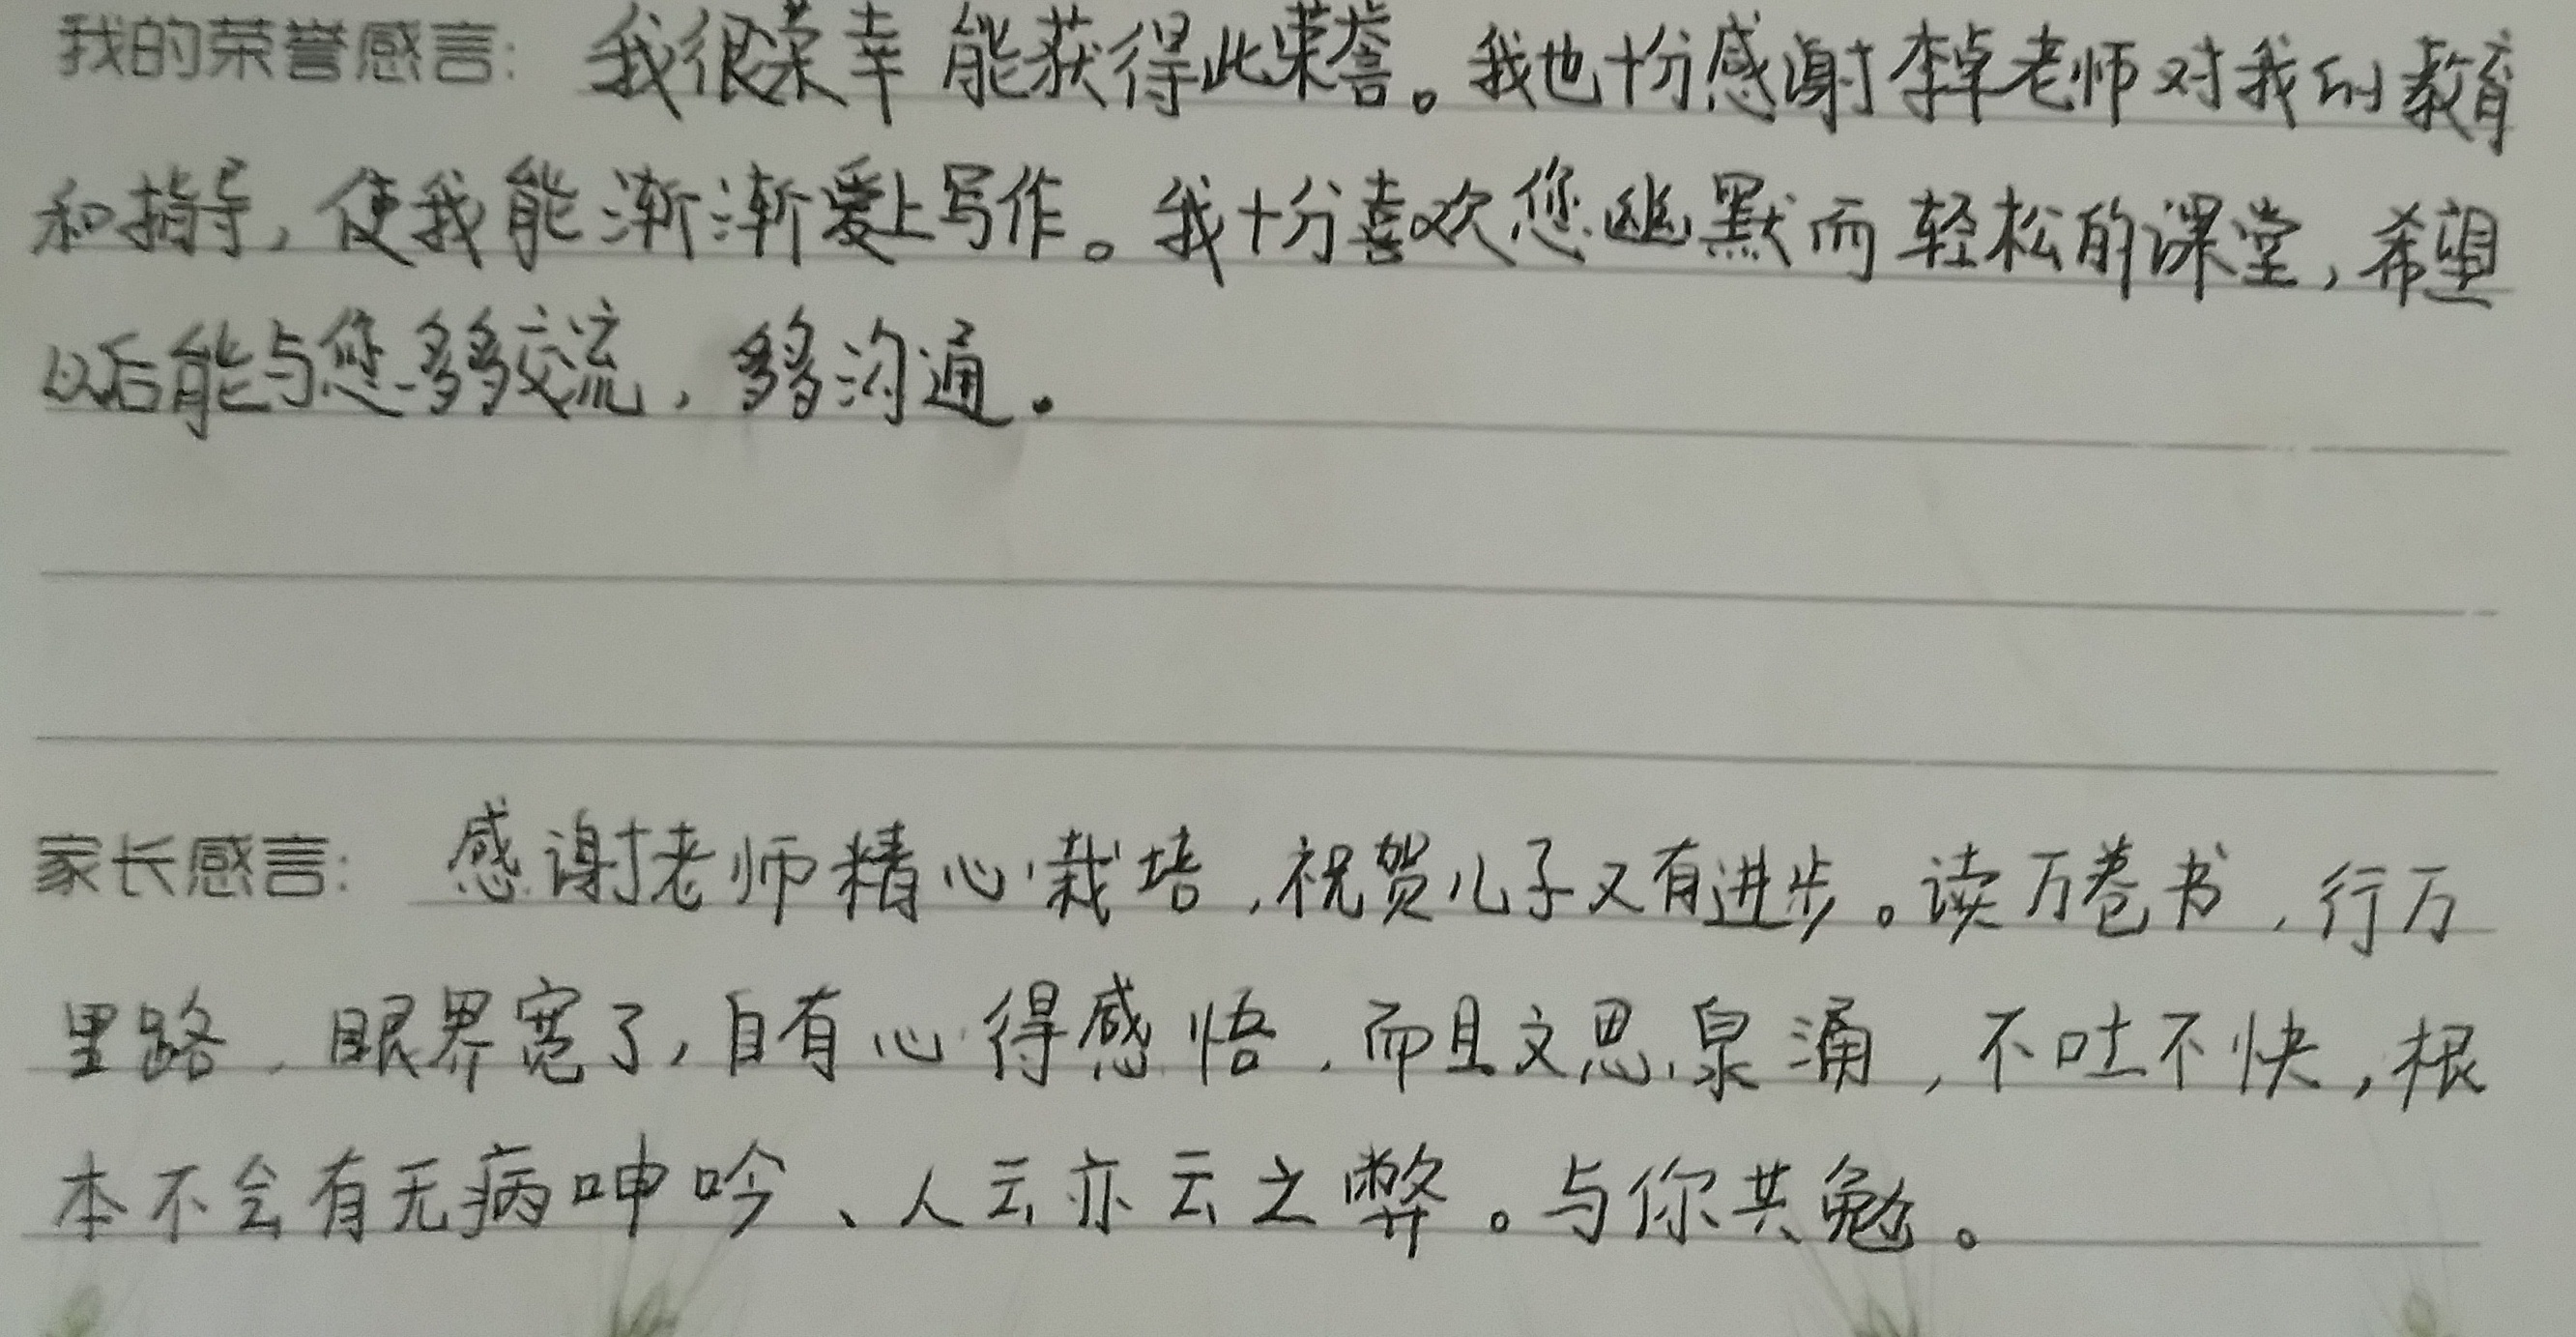 我的荣誉感言: 我很荣幸能获得此荣誉。我也十份感谢李卓老师对我的教育
和指导，使我能渐渐爱上写作。我十分喜欢您幽默而轻松的课堂，希望
以后能与您多多交流，多多沟通。
家长感言: 感谢老师精心栽培，祝贺儿子又有进步。读万卷书，行万
里路，眼界宽了，自有心得感悟，而且文思泉涌，不吐不快，根
本不会有无病呻吟、人云亦云之弊。与你共勉。